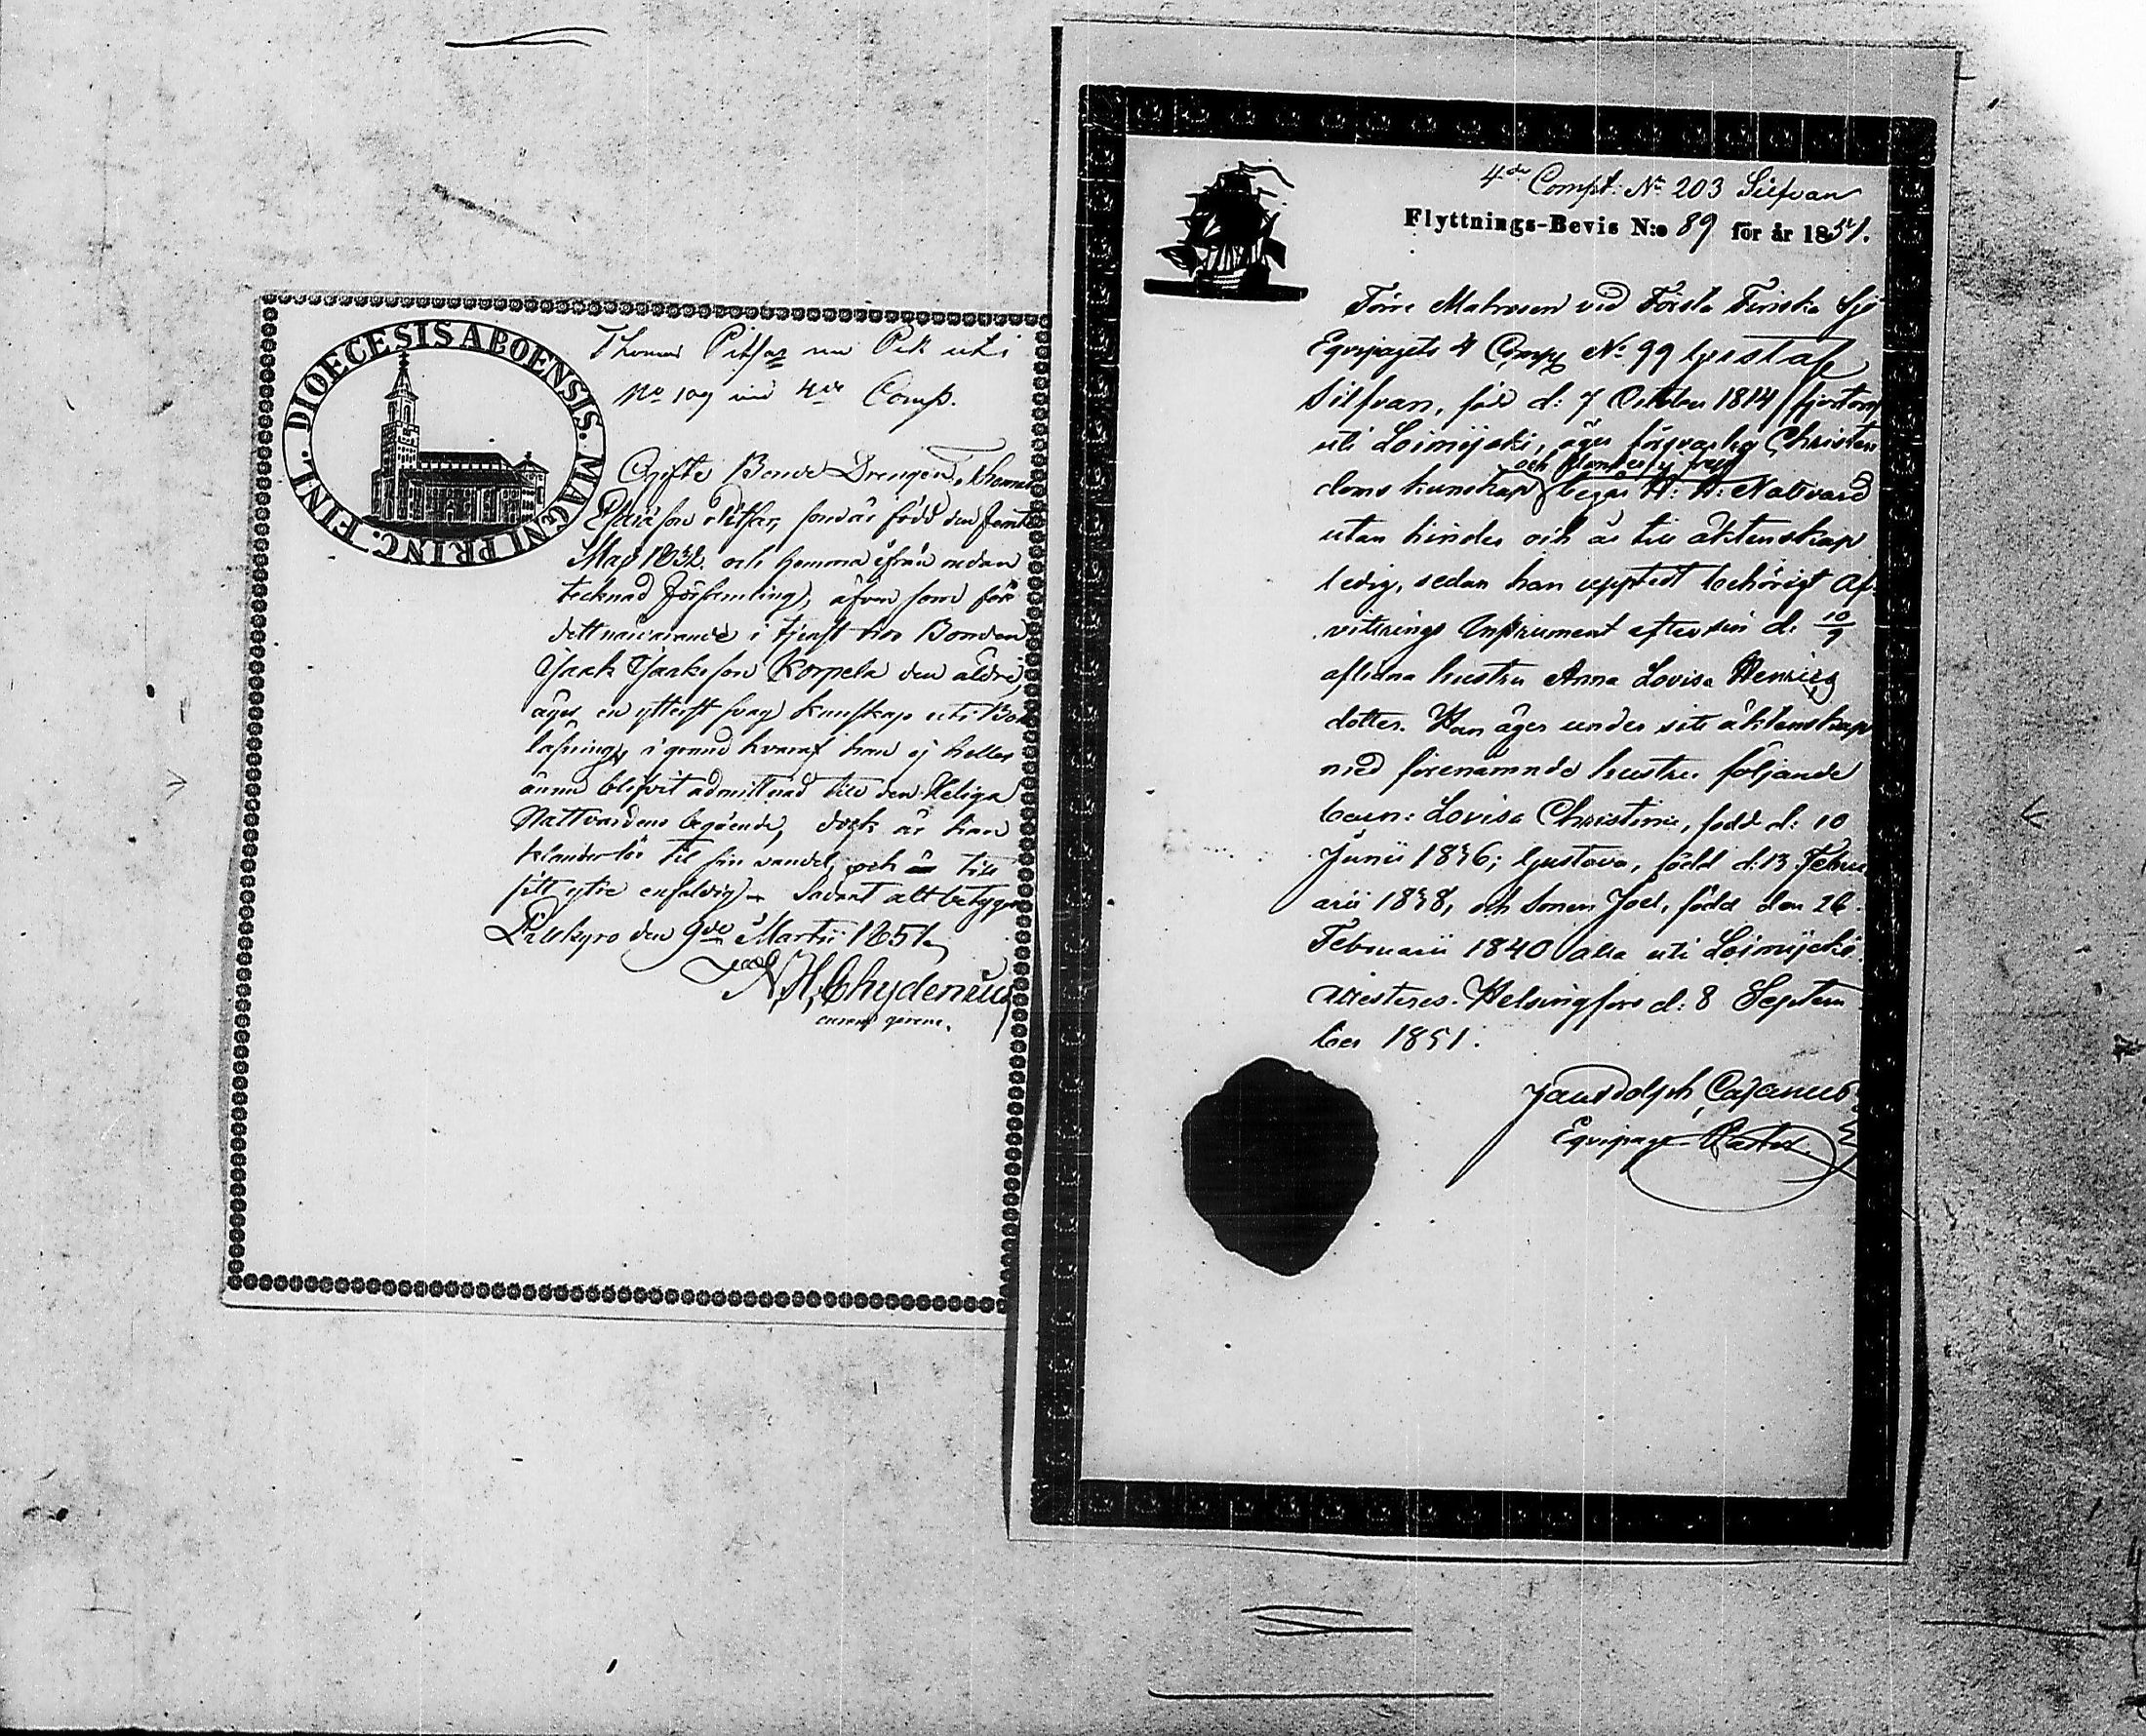 DIOECESIS ABOENSIS. MAGNI PRINC. FINL.
Thomas Pitkar nu Pik uti
No 109 vid 4de Comp.
Ogifte Bonde Drengen Thomas
Esaiason Pitkar, som är född den
Maj 1832. och hemma ifrån nedan
tecknad församling, äfven som för
dett närvarande i tjenst hos Bonden
Isaak Isaksson Korpela den äldre,
äger en ytterst svag kunskap uti Bok
läsning, i grund hvaraf han ej heller
ännu blifvit admitterad till den Heliga
Nattvardens begående, dock är han
klanderlös til sin vandel, och till
sitt yttre enfaldig. Sådant allt betygar
Lillkyro den 9de Martii 1851.
A. H. Chydenius
curam gerens.
4de Compt: No 203 Silfvan
Flyttnings-Bevis N:o 89 för år 1851.
Förre Matrosen vid Första Finska Sjö
Equipagets 4 Comp No 99 Gustaf
Silfvan, född d: 7 October 1814 (fjorton)
uti Loimijoki, äger försvarlig Christen
och frejd
doms kunskap begår H: H: Nattvard
utan hinder och är till äktenskap
ledig, sedan han uppte­dt behörigt Af
vittrings Instrument efter sin d: 10/9
aflidna hustru Anna Lovisa Henrics
dotter. Han äger under sitt äktenskap
med förenämnde hustru följande
barn: Lovisa Christina, född d: 10
Junii 1836; Gustava, född d: 13 Febru
arii 1838, och Sonen Joel, född den 26
Februarii 1840 alla uti Loimijoki.
Attesteres. Helsingfors d: 8 Septem
ber 1851.
Jan Adolph Cajanus
Equipage-Pastor.